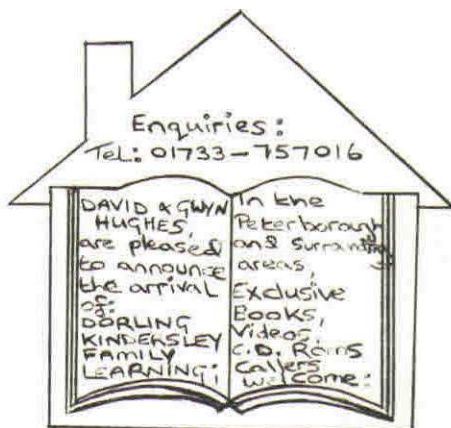 Enquiries:
Tel: 01733-757016
DAVID & GWYN
HUGHES,
are pleased
to announce
the arrival
of:
DORLING
KINDERSLEY
FAMILY
LEARNING;
In the
Peterborough
and surrounding
areas,
Exclusive
Books,
Videos,
C.D. Roms
Callers
welcome: